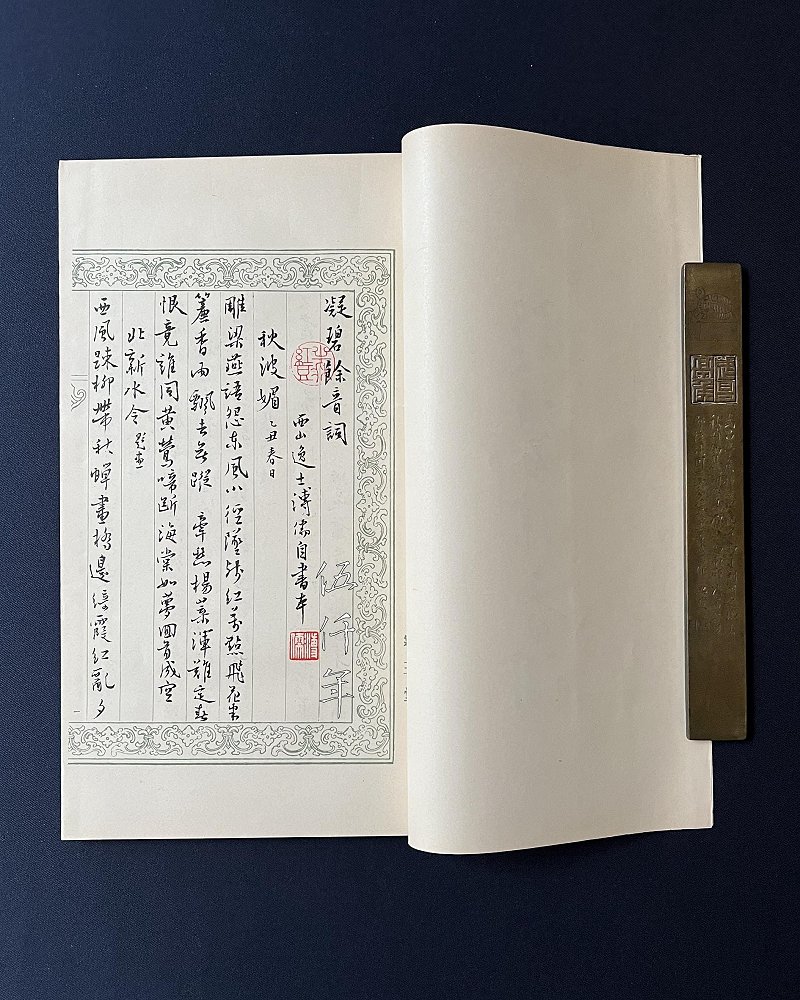 凝碧餘音詞
西山逸士溥儒自書本
溥儒
秋波媚 乙丑春日
雕梁燕語怨東風小徑墜殘紅萬點飛花半
簾香雨飄去無蹤 牽愁楊葉渾難定春
恨竟誰同黃鶯啼斷海棠如夢回首成空
北新水令 題畫
西風疎柳帶秋蟬畫橋邊綺霞紅亂夕
伍仟年